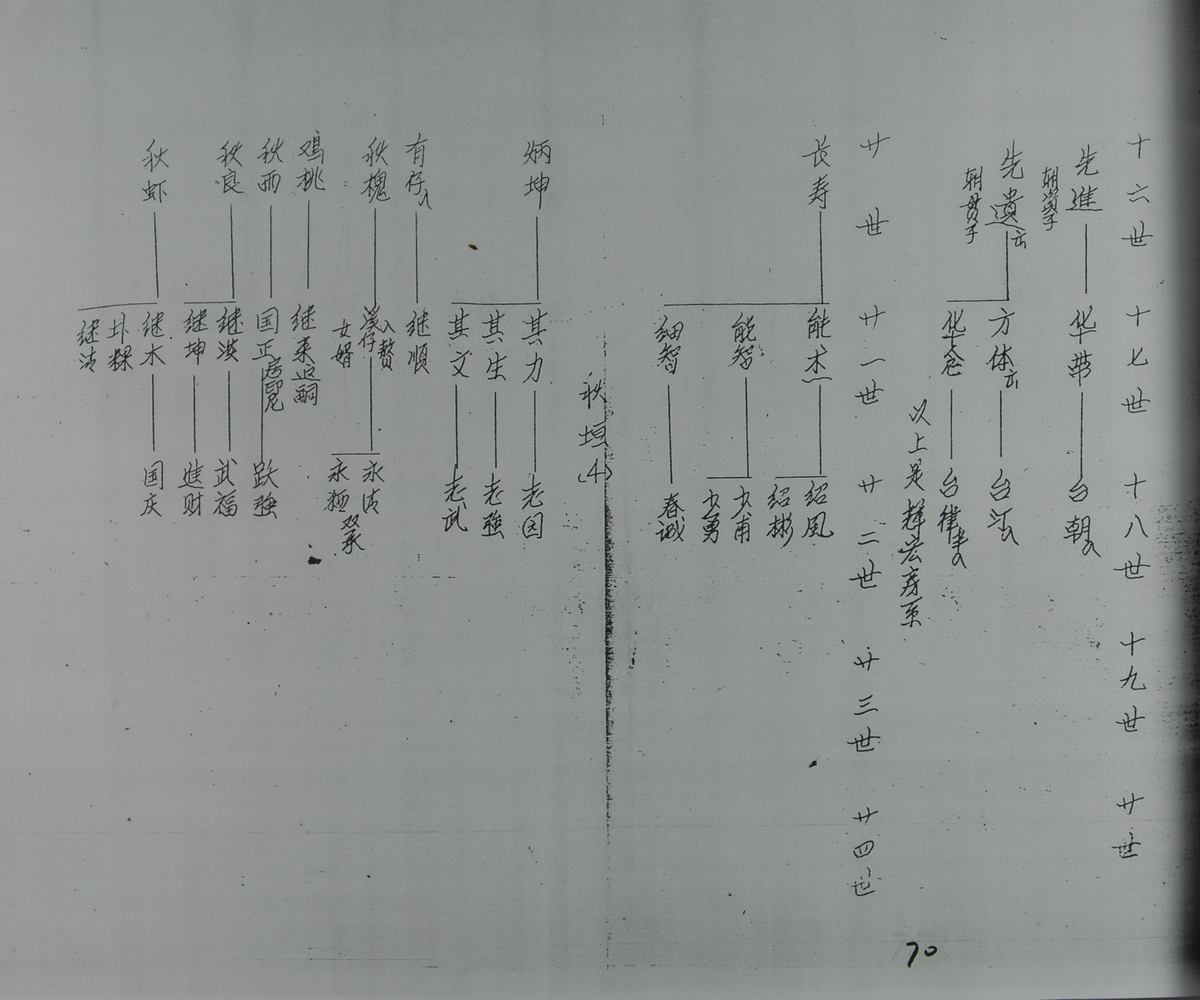 十六世 十七世 十八世 十九世 廿世
先進
朝資子
华带
台朝
先遺
朝贵子
方体
台江
华
台律
以上是輝宏房系
廿世 廿一世 廿二世 廿三世 廿四世
长寿
能术
绍风
绍彬
能智
少甫
少勇
细智
春诚
秋垣(4)
炳坤
其力
老园
其生
老強
其文
老武
有仔
继順
秋槐
溪仔
入赘
女婿
永清
永
双承
鸡桃
继来
嗣
秋西
国正
跃強
秋良
继洪
武福
继坤
進财
秋虾
继木
国庆
卦粿
继清
70